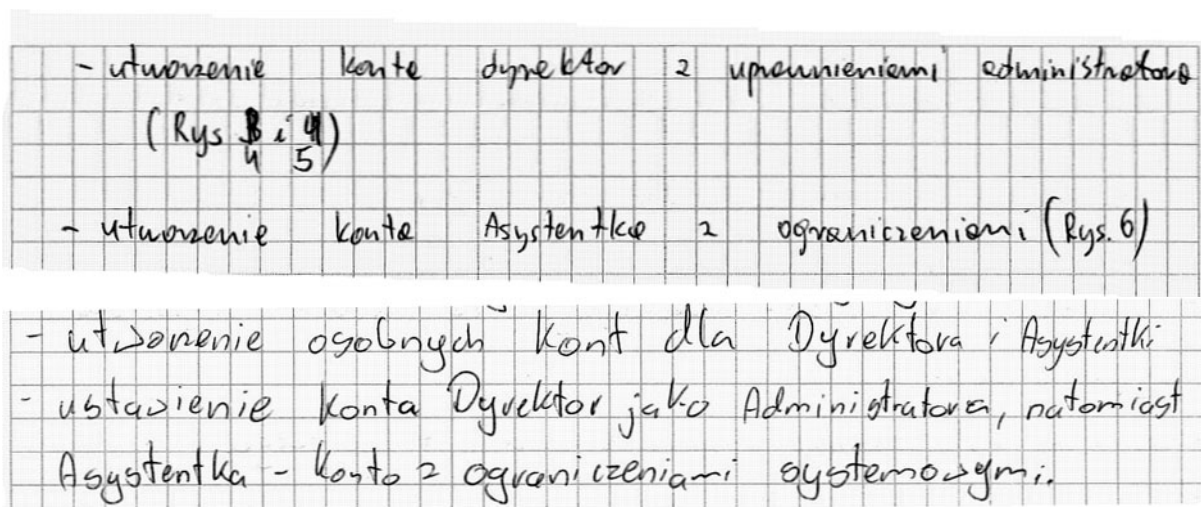 - utworzenie konta dyrektor z uprawnieniami administratora
(Rys 4 i 5)
- utworzenie konta Asystentka z ograniczeniami (Rys. 6)
- utworzenie osobnych kont dla Dyrektora i Asystentki
- ustawienie konta Dyrektor jako Administratora, natomiast
Asystentka - konto z ograniczeniami systemowymi.